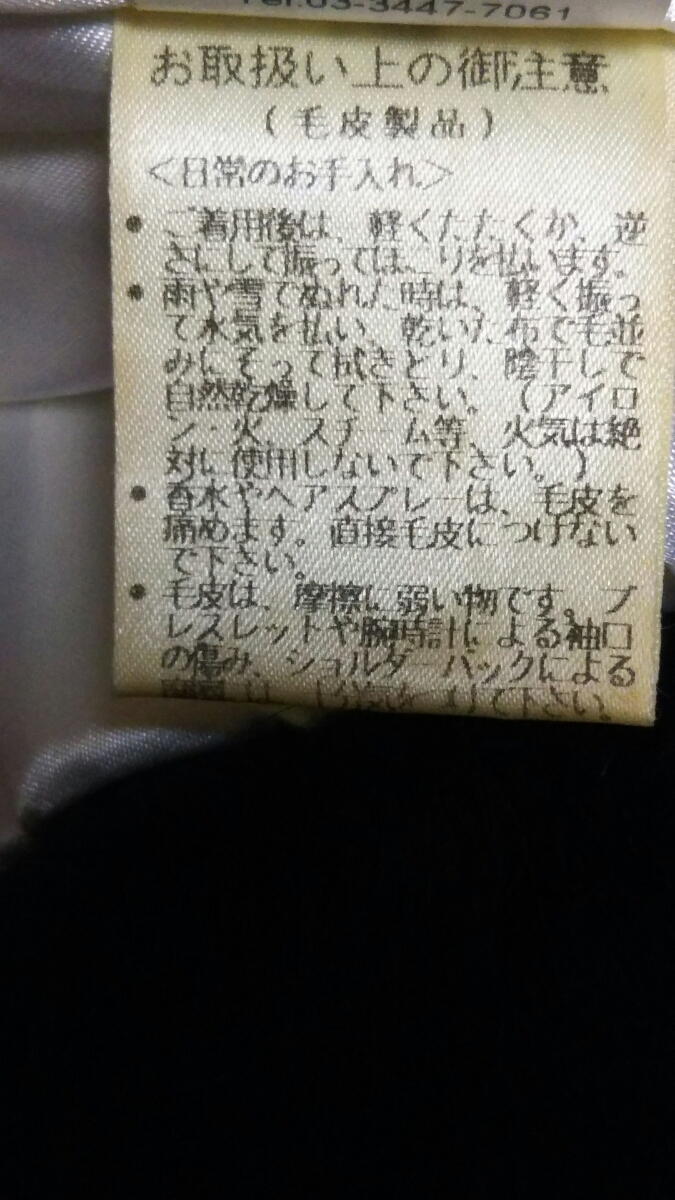 Tel.03-3447-7061
お取扱い上の御注意
(毛皮製品)
<日常のお手入れ>
• ご着用後は、軽くたたくか、逆
さにして振ってほこりを払います。
• 雨や雪でぬれた時は、軽く振っ
て水気を払い、乾いた布で毛並
みにそって拭きとり、陰干しで
自然乾燥して下さい。(アイロ
ン・火、スチーム等、火気は絶
対に使用しないで下さい。)
• 香水やヘアスプレーは、毛皮を
痛めます。直接毛皮につけない
で下さい。
• 毛皮は、摩擦に弱い物です。ブ
レスレットや腕時計による袖口
の傷み、ショルダーバックによる
て下さい。